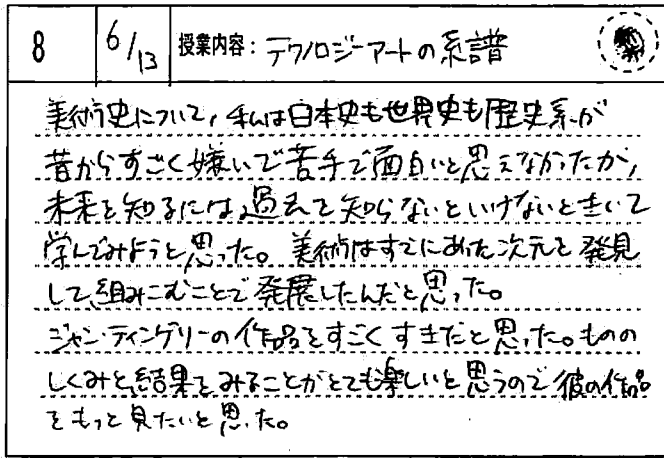 8 6/13 授業内容: テクノロジーアートの系譜
美術史について, 私は日本史も世界史も歴史系が
昔からすごく嫌いで苦手で面白いと思えなかったが,
未来を知るには過去を知らないといけないときいて
学んでみようと思った。美術はすでにあった次元を発見
して,組みこむことで発展したんだと思った。
ジャン・ティンゲリーの作品をすごくすきだと思った。ものの
しくみと,結果をみることがとても楽しいと思うので彼の作品
をもっと見たいと思った。